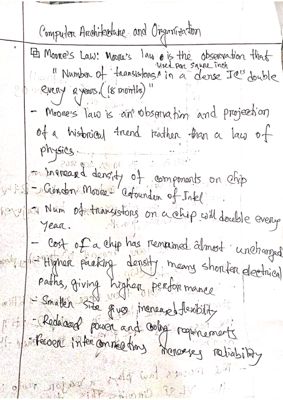 Computer Architecture and Organization
Moore's Law: Moore's law is the observation that
used per square inch
"Number of transistors in a dense IC" double
every 2 years. (18 months)"
- Moore's law is an observation and projection
of a historical trend rather than a law of
physics.
- Increased density of components on chip
- Gordon Moore - Cofounder of Intel
- Num of transistors on a chip will double every
year.
- Cost of a chip has remained almost unchanged
- Higher packing density means shorter electrical
paths, giving higher performance
- Smaller size gives increased flexibility
- Reduced power and cooling requirements
- Fewer interconnections increases reliability